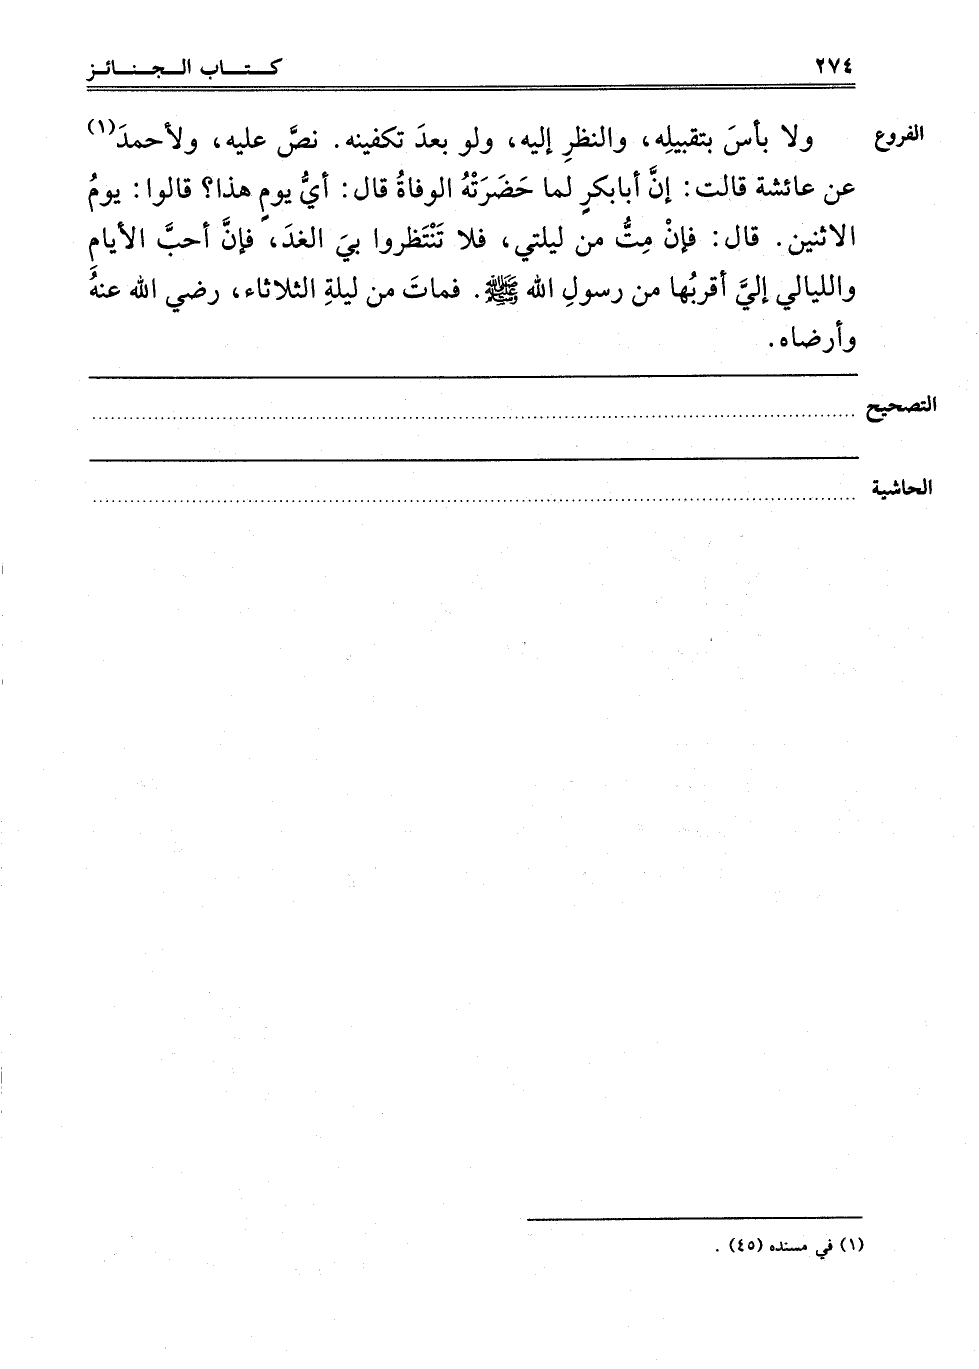 ٢٧٤
كتاب الجنائز
الفروع
ولا بأسَ بتقبيلِه، والنظرِ إليه، ولو بعدَ تكفينه. نصَّ عليه، ولأحمدَ(١)
عن عائشة قالت: إنَّ أبابكرٍ لما حَضَرَتْهُ الوفاةُ قال: أيُّ يومٍ هذا؟ قالوا: يومُ
الاثنين. قال: فإنْ مِتُّ من ليلتي، فلا تَنْتَظروا بيَ الغدَ، فإنَّ أحبَّ الأيامِ
والليالي إليَّ أقربُها من رسولِ الله ﷺ. فماتَ من ليلةِ الثلاثاء، رضي الله عنهُ
وأرضاه.
التصحيح
الحاشية
(١) في مسنده (٤٥) .